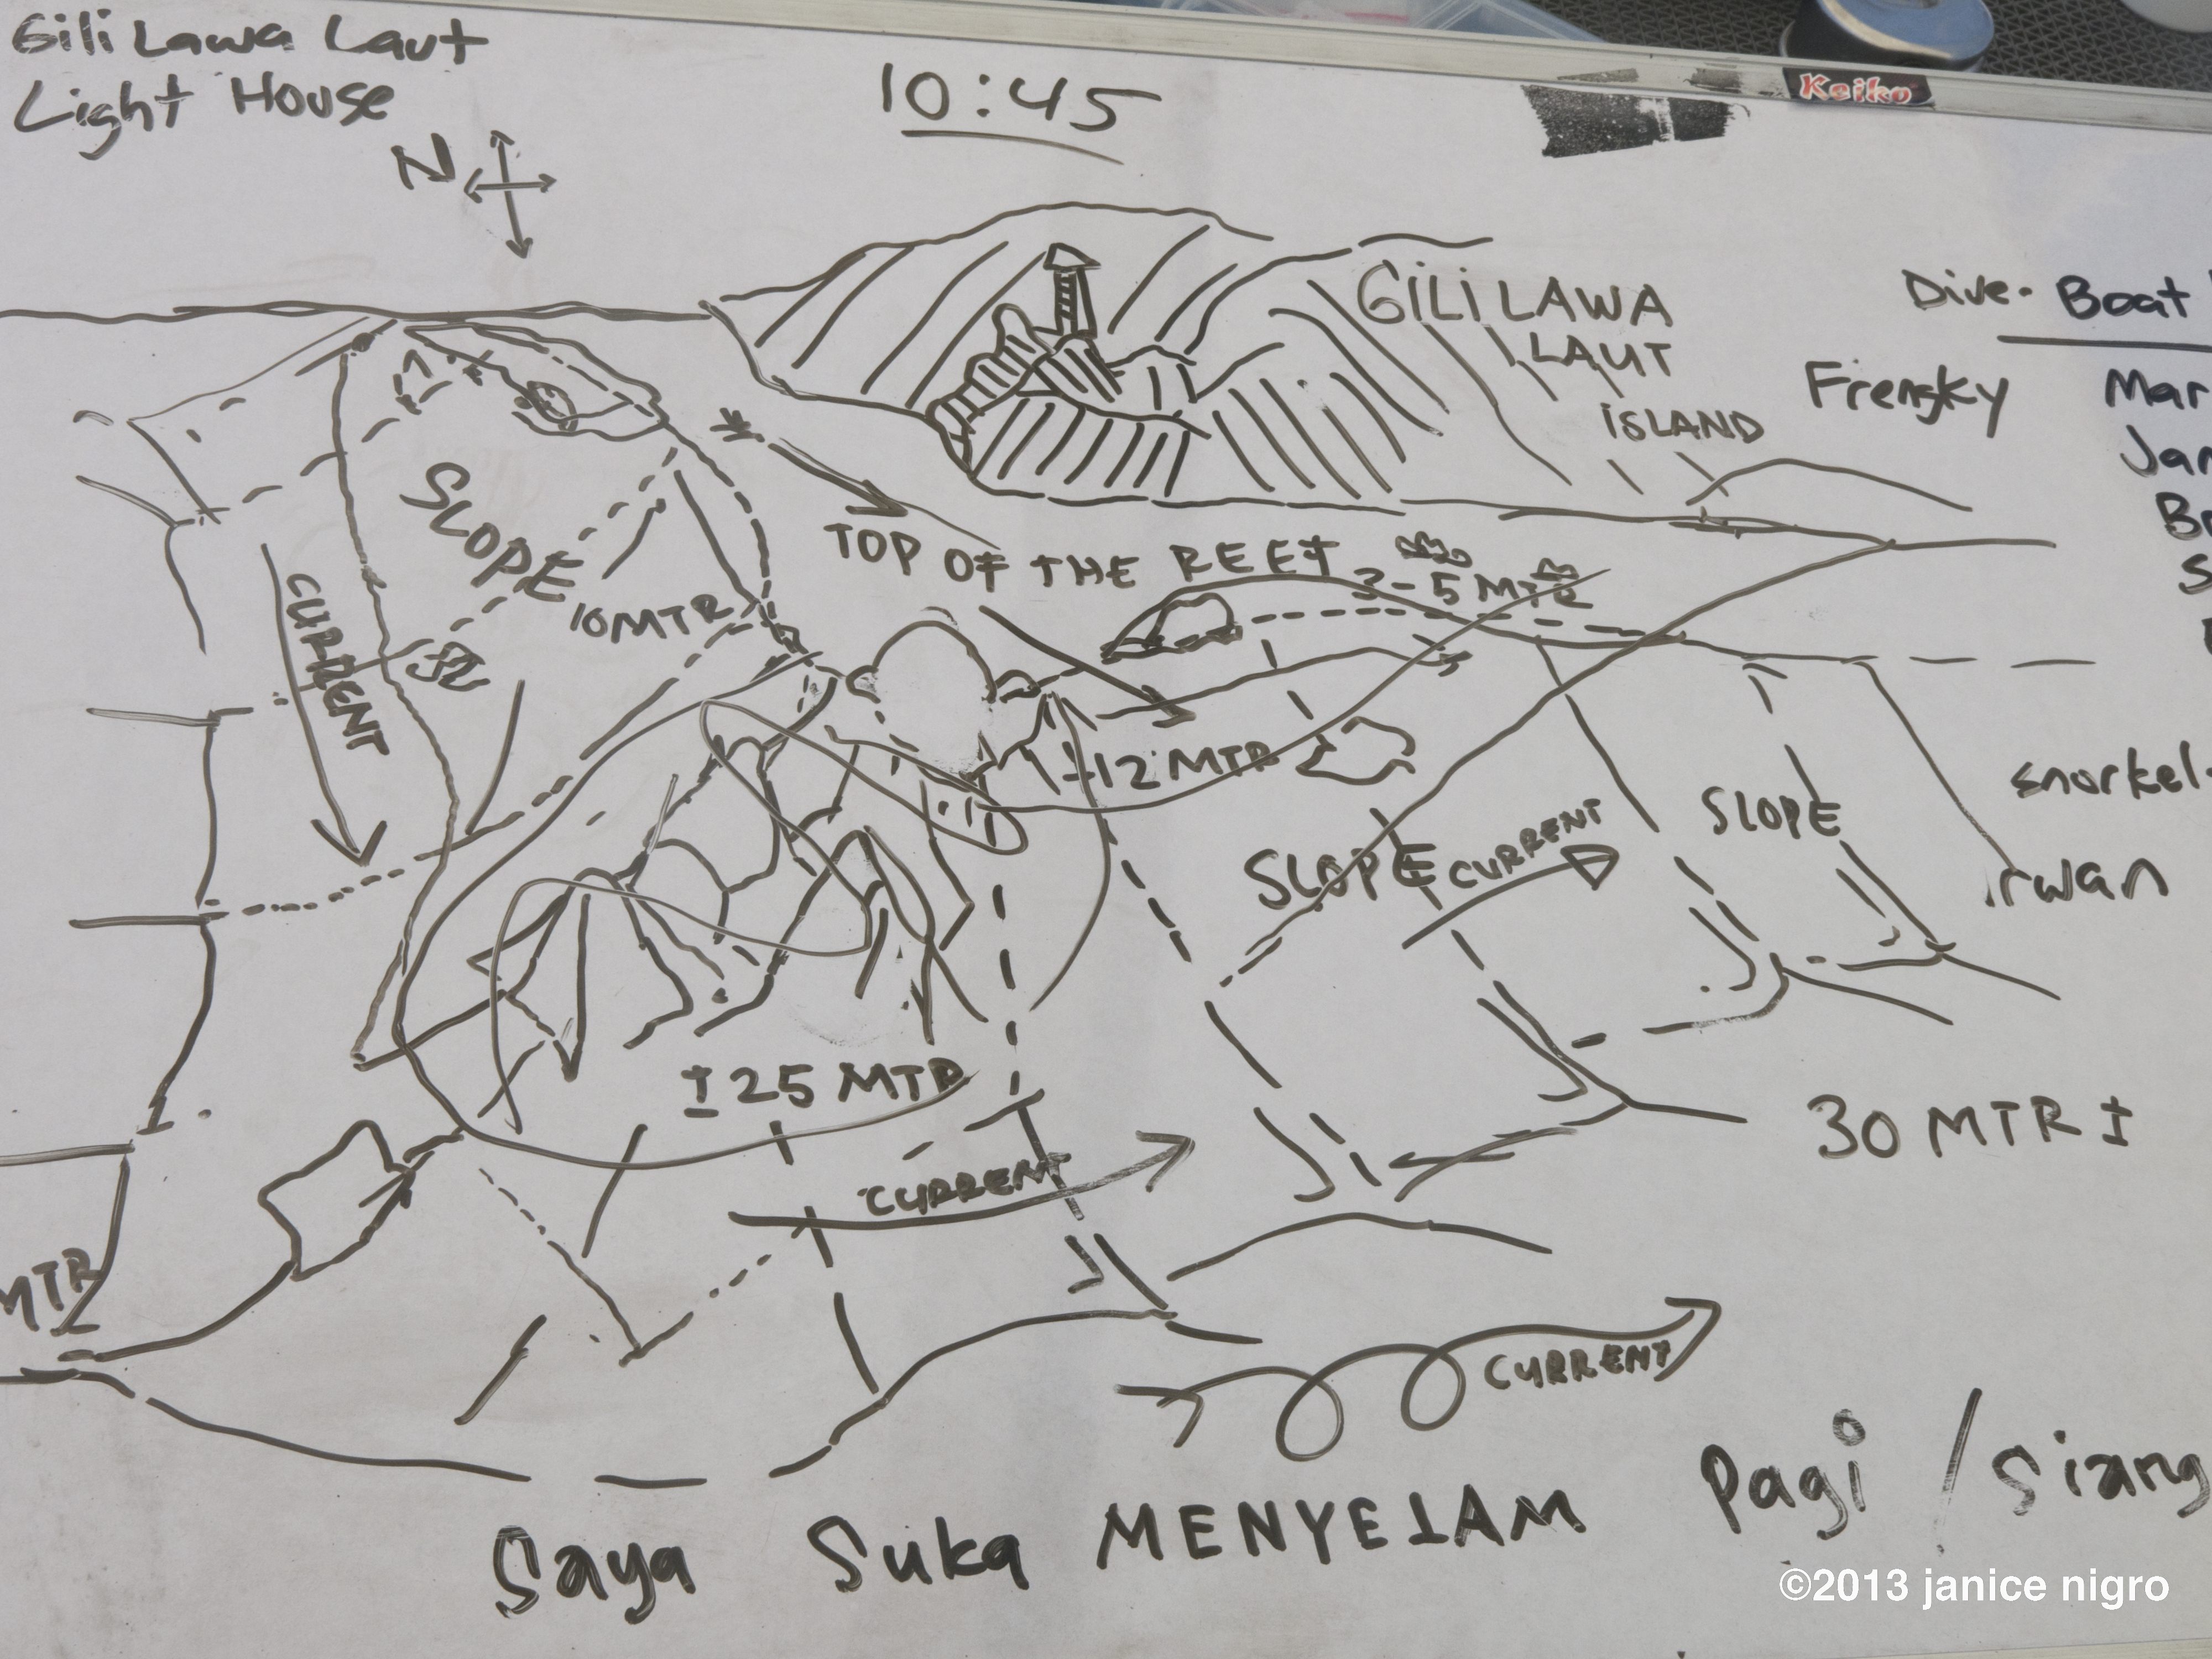 Gili Lawa Laut
Light House
N
10:45
Keiko
GILI LAWA
LAUT
ISLAND
Dive. Boat
Frengky
Mar
Jan
SLOPE
CURRENT
10 MTR
TOP OF THE REEF 3-5 MTR
±12 MTR
SLOPE
CURRENT
SLOPE
snorkel
irwan
±25 MTR
CURRENT
30 MTR ±
MTR
CURRENT
Saya Suka MENYELAM Pagi / Siang
©2013 janice nigro